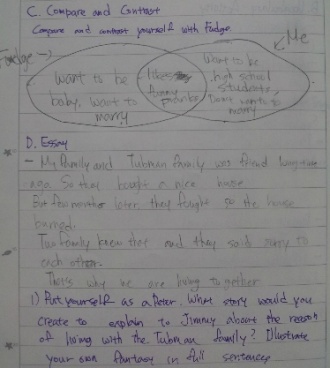 C. Compare and Contrast
Compare and contrast yourself with Fudge
Me
Fudge
want to be
baby. want to
marry
likes
funny
Want to be
high school
students,
Don't want to
marry
D. Essay
- My family and Tubman family was friend long time
ago. So they bought a nice house
But few months later they fought so the house
burned.
Two family knew that and they said sorry to
each other.
That's why we are living together
1) Put yourself as a Peter. What story would you
create to explain to Jimmy about the reason
of living with the Tubman family? Illustrate
your own fantasy in full sentences